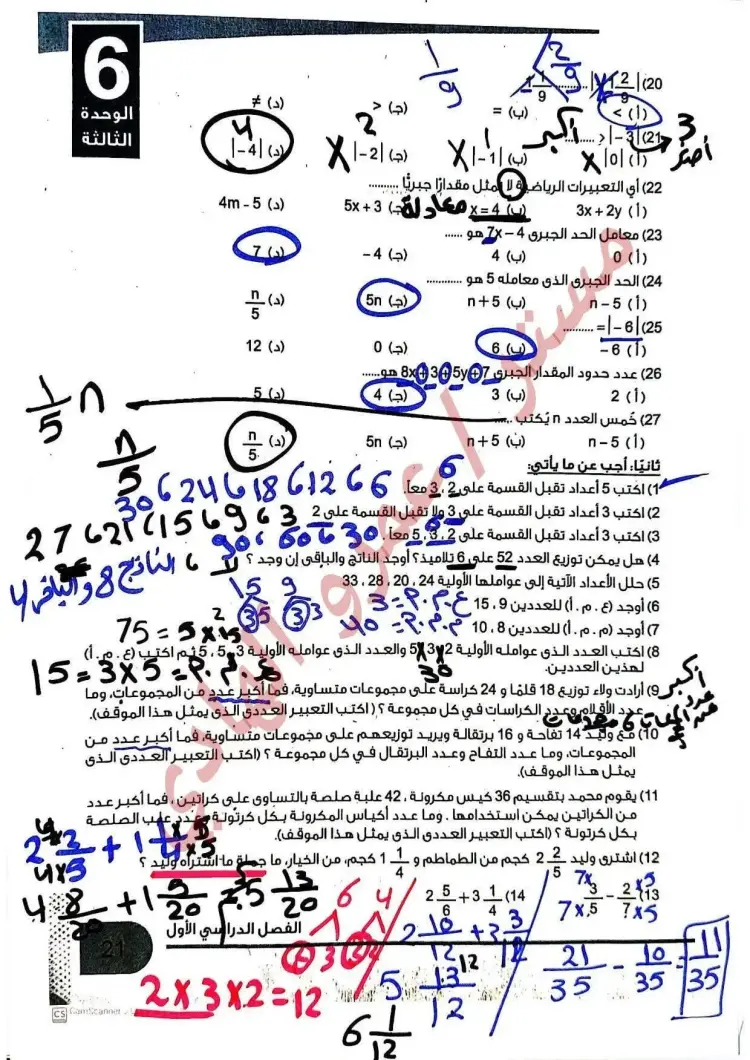 6
الوحدة
الثالثة
1/9
2/9
20) |1 2/9| ........... 1 1/9
(أ) > (ب) = (ج) < (د) ≠
21) |-3| < ...........
3
أصغر
أكبر
(أ) |0| (ب) |-1| (ج) |-2| (د) |-4|
X X 1 X 2 4
22) أي التعبيرات الرياضية لا تمثل مقدارًا جبريًا ...........
(أ) 3x + 2y (ب) x = 4 (ج) 5x + 3 (د) 4m - 5
معادلة
23) معامل الحد الجبرى 7x - 4 هو ......
(أ) 0 (ب) 4 (ج) -4 (د) 7
24) الحد الجبرى الذى معامله 5 هو ...........
(أ) n - 5 (ب) n + 5 (ج) 5n (د) n/5
25) |-6| = ..........
(أ) -6 (ب) 6 (ج) 0 (د) 12
26) عدد حدود المقدار الجبرى 8x + 3 + 5y + 7 هو......
(أ) 2 (ب) 3 (ج) 4 (د) 5
27) خُمس العدد n يُكتب ......
1/5 n
(أ) n - 5 (ب) n + 5 (ج) 5n (د) n/5
n/5
ثانيًا: أجب عن ما يأتي:
6
1) اكتب 5 أعداد تقبل القسمة على 2 ، 3 معاً.
30 6 24 6 18 6 12 6 6
2) اكتب 3 أعداد تقبل القسمة على 3 ولا تقبل القسمة على 2
27 6 21 6 15 6 9 6 3
3) اكتب 3 أعداد تقبل القسمة على 2 ، 3 ، 5 معا .
90 6 60 6 30
4) هل يمكن توزيع العدد 52 على 6 تلاميذ؟ أوجد الناتج والباقى إن وجد ؟
لا 6 الناتج 8 والباقى 4
5) حلل الأعداد الآتية إلى عواملها الأولية 24 ، 20 ، 28 ، 33
6) أوجد (ع . م . أ) للعددين 9 ، 15
ع.م.أ = 3
15 9
3 5 3 3
7) أوجد (م . م . أ) للعددين 8 ، 10
م.م.أ = 40
8) اكتب العدد الذى عوامله الأولية 2 ، 3 ، 5 والعدد الذى عوامله الأولية 3 ، 5 ، 5 ثم اكتب (ع . م . أ)
لهذين العددين.
30
75 = 5 x 15
ع.م.أ = 5 x 3 = 15
9) أرادت ولاء توزيع 18 قلمًا و 24 كراسة على مجموعات متساوية، فما أكبر عدد من المجموعات، وما
عدد الأقلام وعدد الكراسات في كل مجموعة ؟ ( اكتب التعبير العددى الذى يمثل هذا الموقف).
أكبر
عدد
10) مع وليد 14 تفاحة و 16 برتقالة ويريد توزيعهم على مجموعات متساوية، فما أكبر عدد من
المجموعات، وما عدد التفاح وعدد البرتقال في كل مجموعة ؟ (اكتب التعبير العددى الذى
يمثل هذا الموقف).
11) يقوم محمد بتقسيم 36 كيس مكرونة ، 42 علبة صلصة بالتساوى على كراتين ، فما أكبر عدد
من الكراتين يمكن استخدامها . وما عدد أكياس المكرونة بكل كرتونة وعدد علب الصلصة
بكل كرتونة ؟ (اكتب التعبير العددى الذي يمثل هذا الموقف).
12) اشترى وليد 2 2/5 كجم من الطماطم و 1 1/4 كجم، من الخيار، ما جملة ما اشتراه وليد ؟
8/20 + 1 5/20 13/20
13) 3/5 - 2/7
21/35 - 10/35 = 11/35
14) 2 5/6 + 3 1/4
2 10/12 + 3 3/12
5 13/12
6 1/12
6 4
2 x 3 x 2 = 12
21
الفصل الدراسي الأول
مستر / عمرو الهادي
CS CamScanner